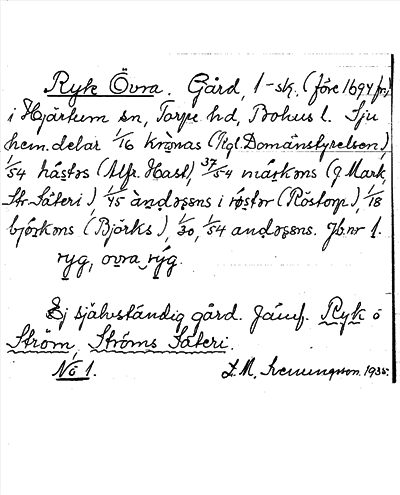 Ryk Övra. Gård, 1-sk. (före 1694 fr.)
i Hjärtum sn, Torpe hd, Bohus l. Sju
hem.delar 1/16 kronas (Kgl. Domänstyrelsen),
1/54 hástos (Alfr. Hast), 37/54 márkons (J Mark,
Str. Säteri), 1/45 àndəʂens i rö́stər (Röstorp), 1/18
bjö́rkons (Björks), 1/30, 1/54 andəʂens. Jb.nr 1.
ryg, ovra ryg.
Ej självständig gård. Jämf. Ryk o
Ström, Ströms Säteri.
No 1.